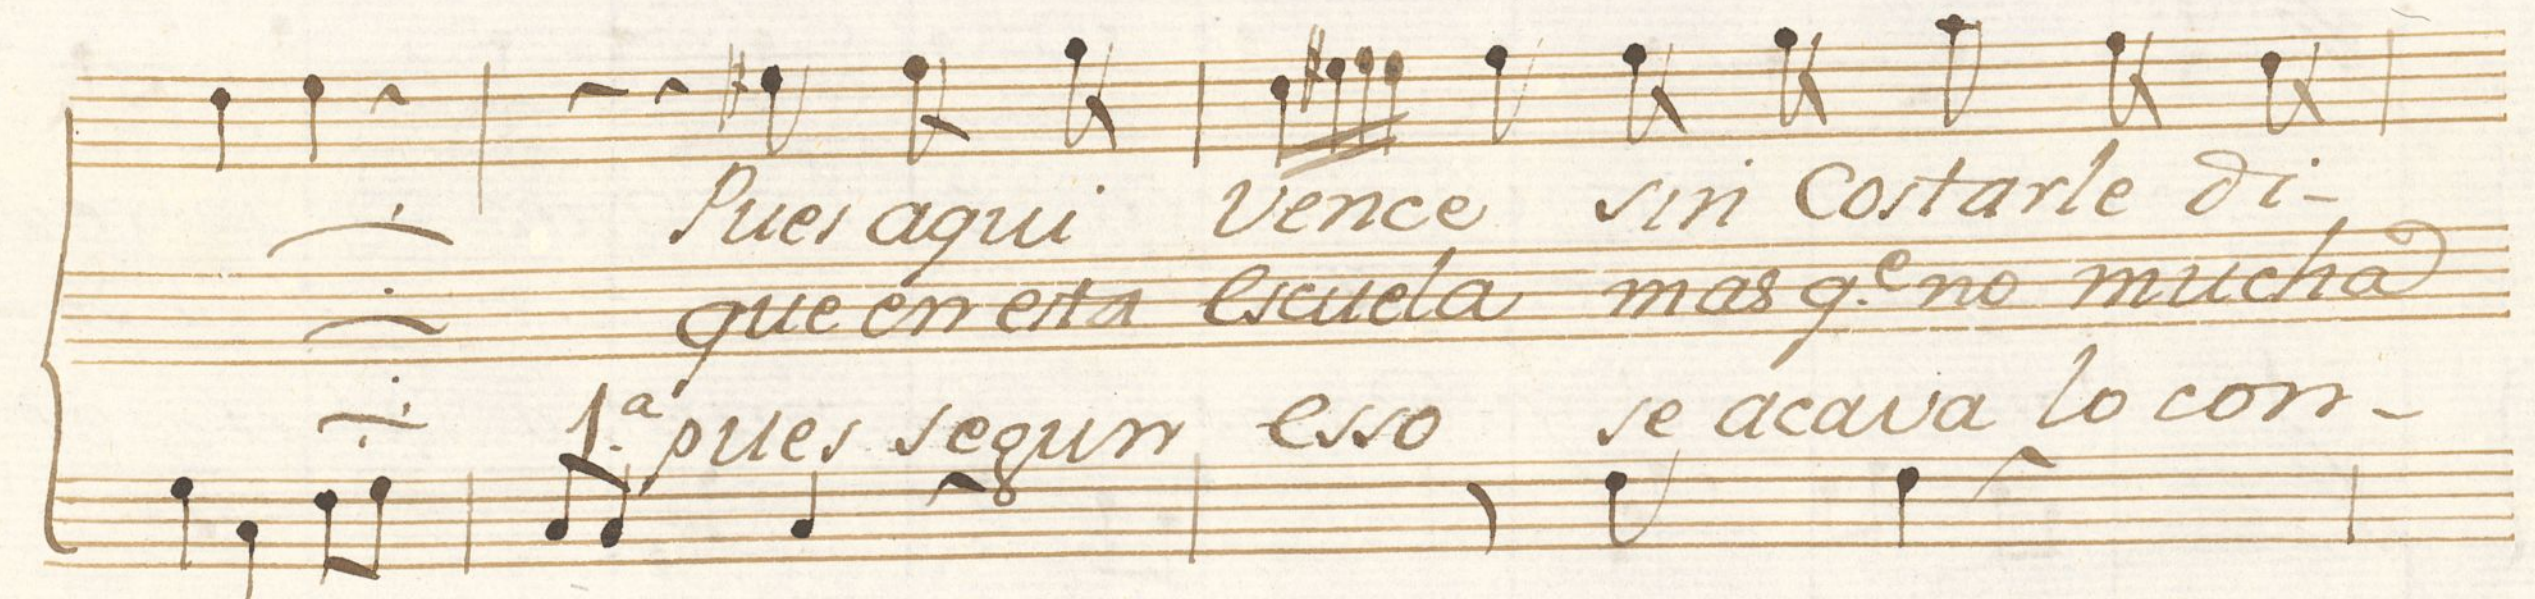 Pues aqui vence sin Costarle di-
que en esta escuela mas q.e no mucha
1.a pues segun esso se acava lo con-